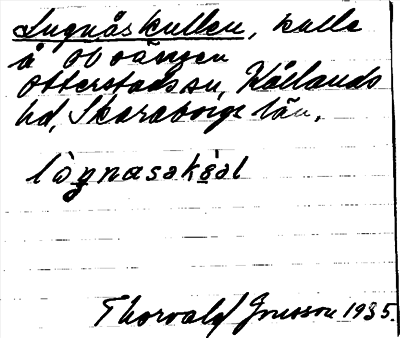 Lugnåskullen, kulle
å Oboängen
Otterstads sn, Kållands
hd, Skaraborgs län.
lògnasakə̀al
Thorvald Jonsson 1935.